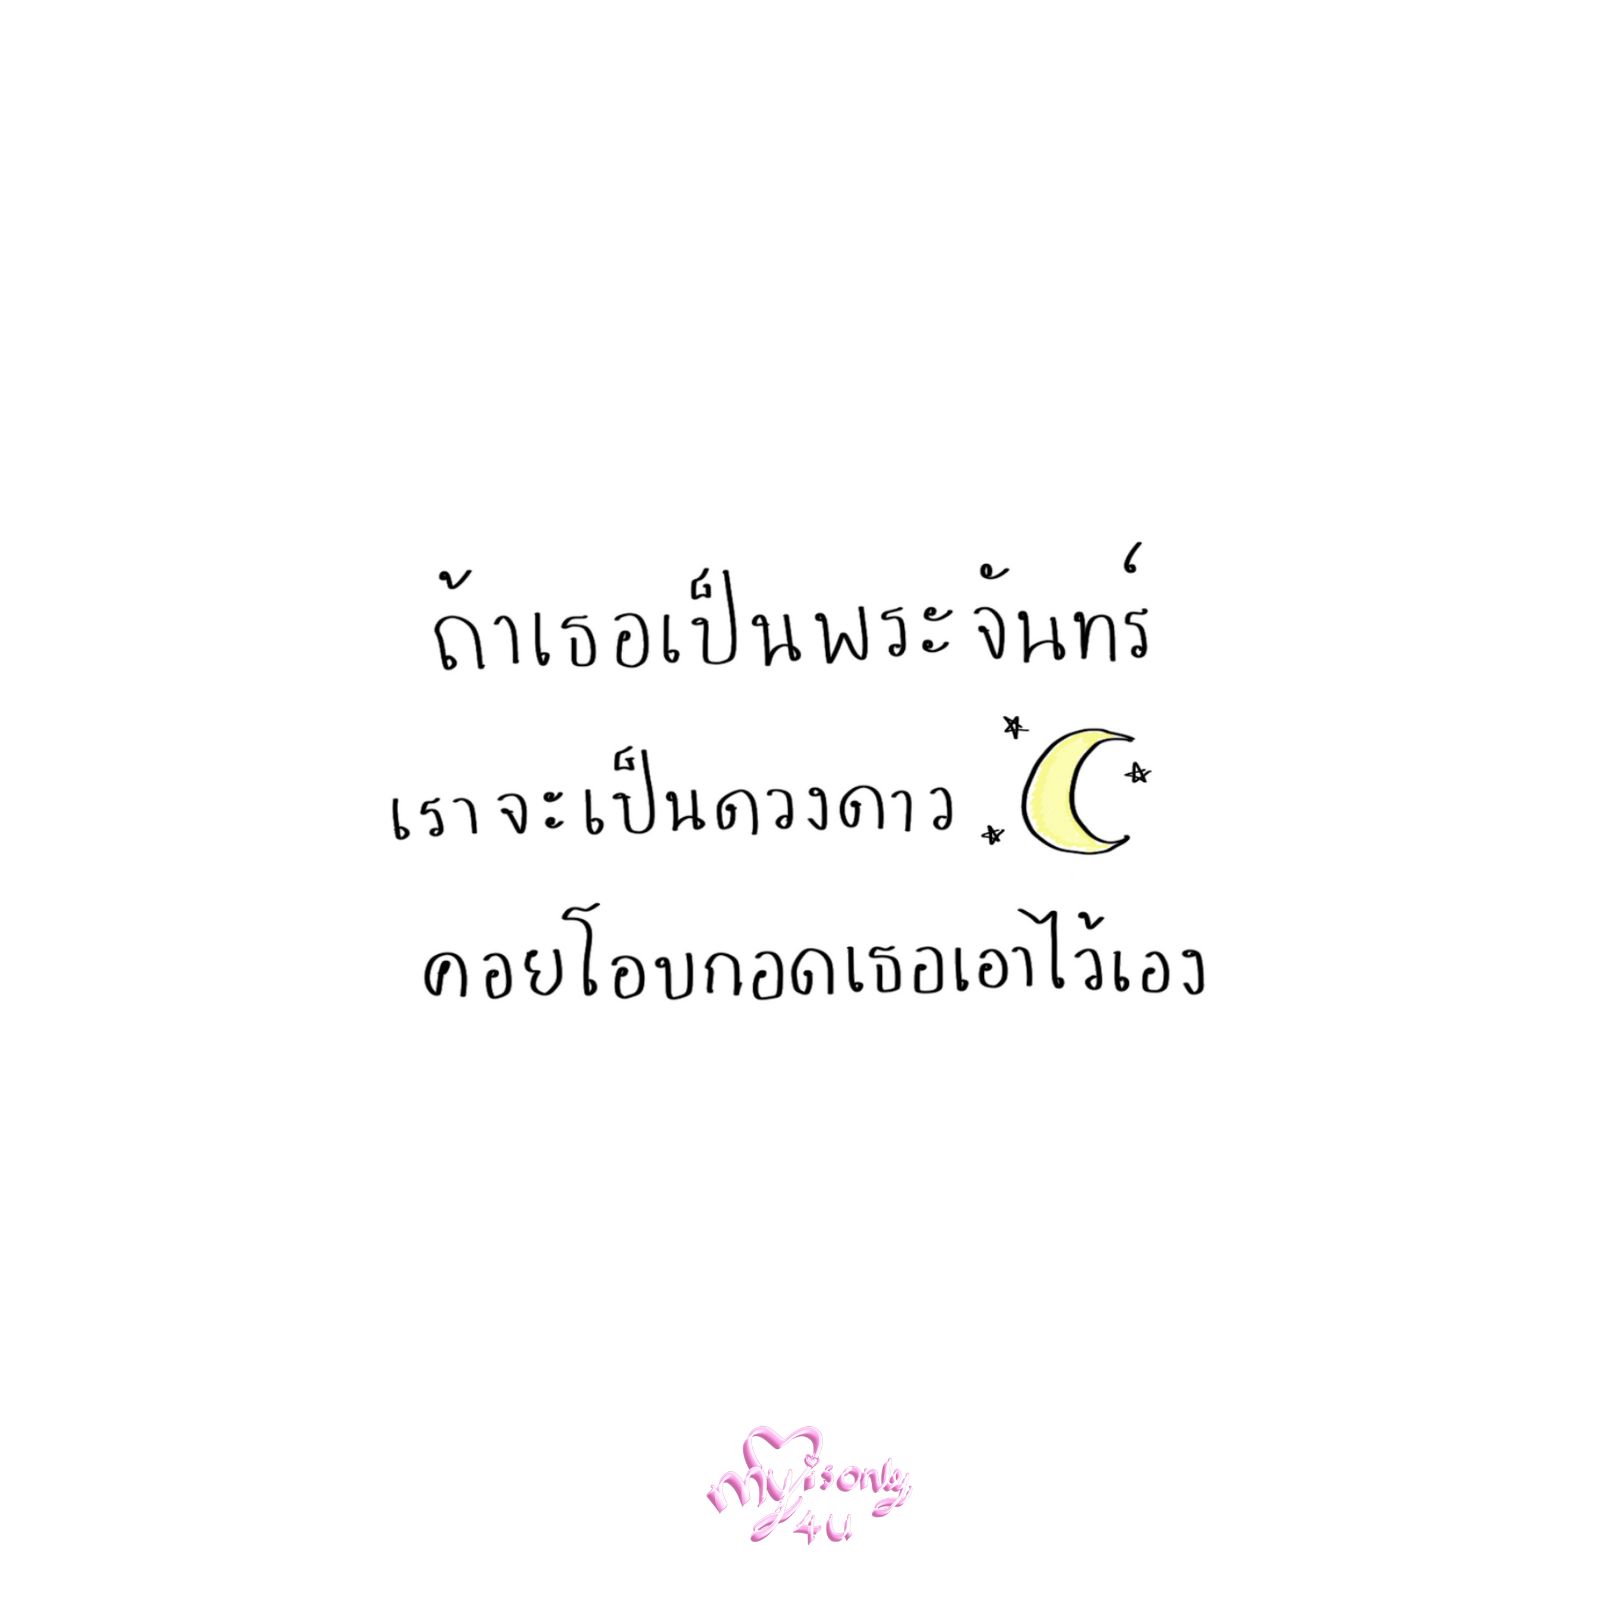 ถ้าเธอเป็นพระจันทร์
เราจะเป็นดวงดาว
คอยโอบกอดเธอเอาไว้เอง
my is only
4 u